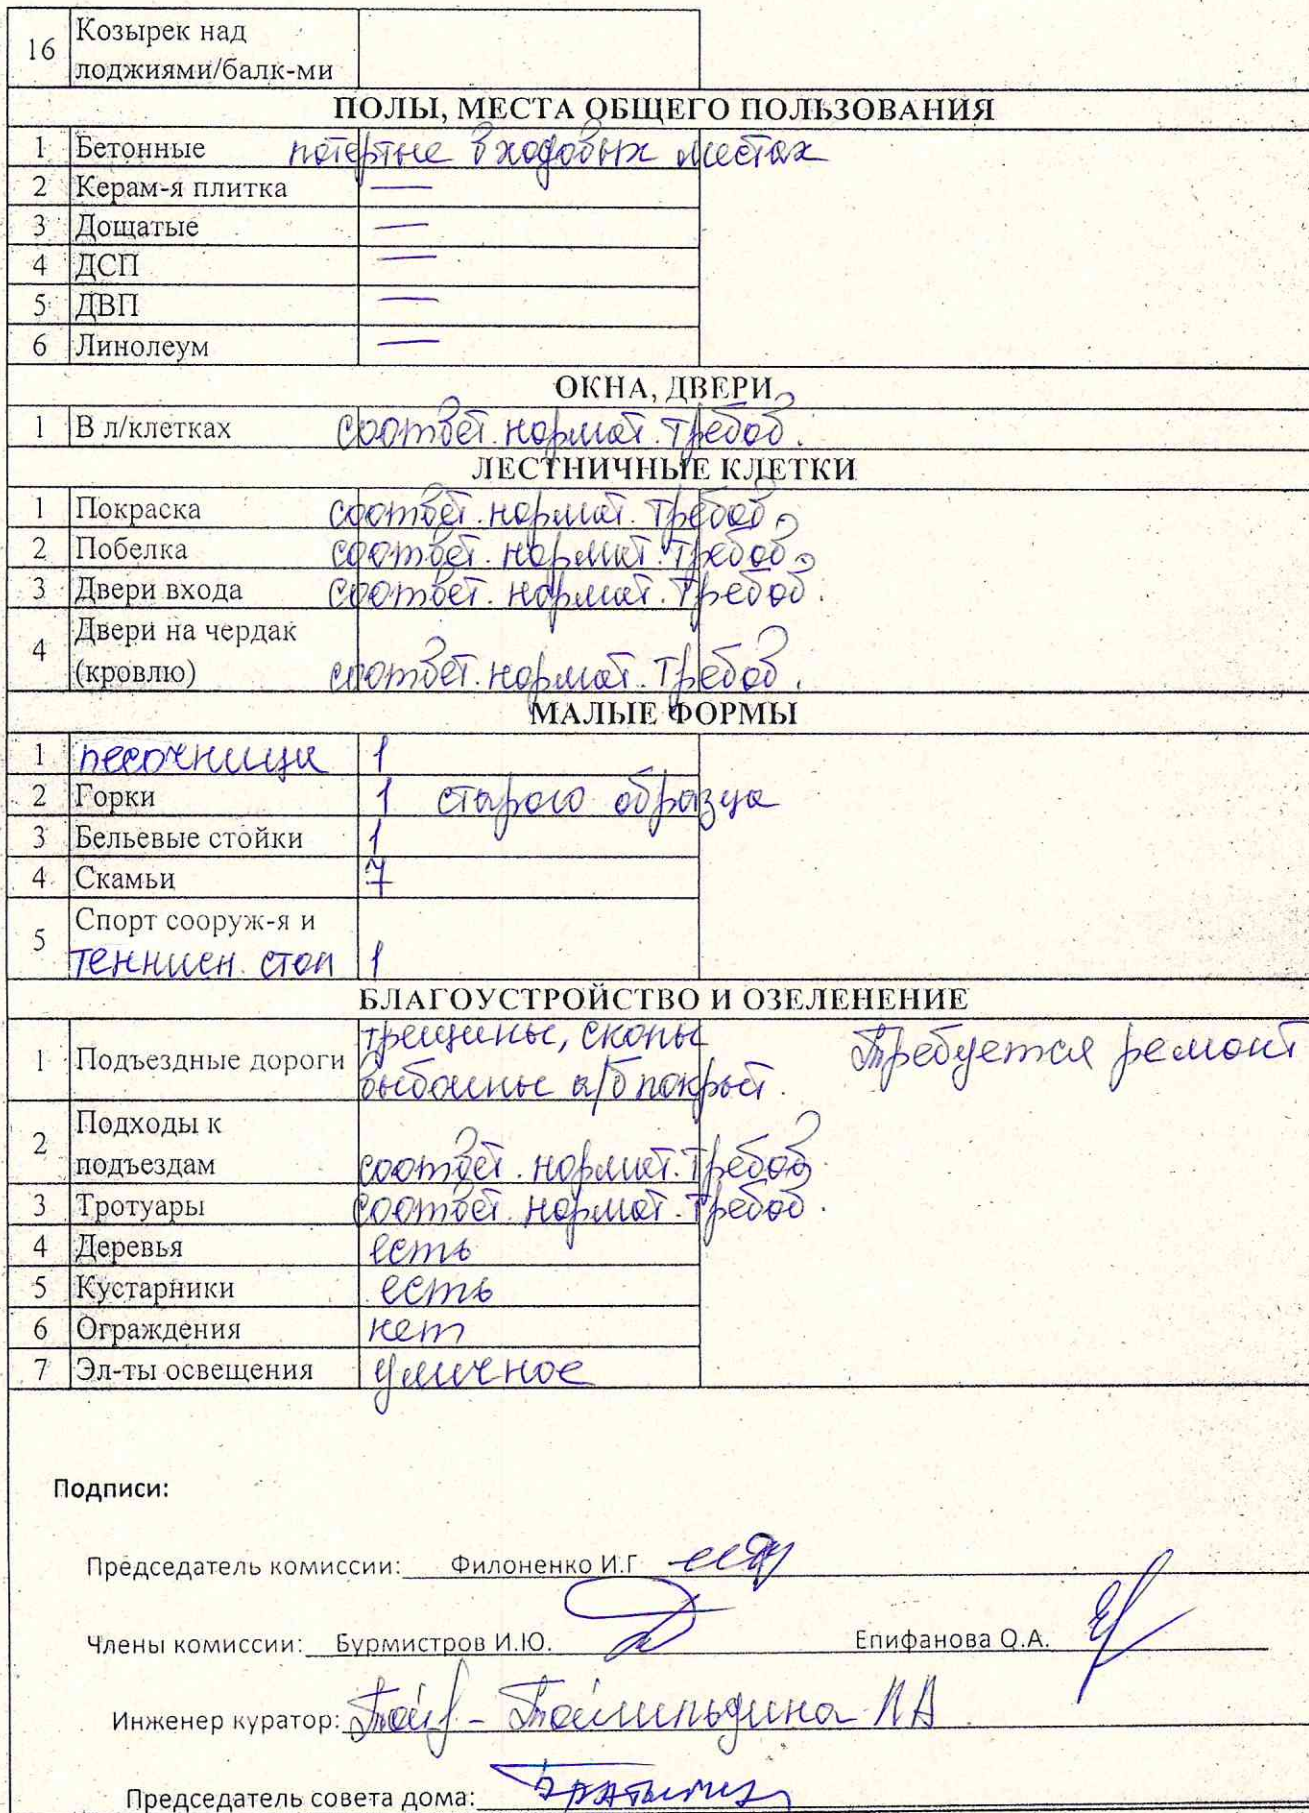 16 Козырек над
лоджиями/балк-ми
ПОЛЫ, МЕСТА ОБЩЕГО ПОЛЬЗОВАНИЯ
1 Бетонные потертые в ходовых местах
2 Керам-я плитка —
3 Дощатые —
4 ДСП —
5 ДВП —
6 Линолеум —
ОКНА, ДВЕРИ
1 В л/клетках соответ. нормат. требов.
ЛЕСТНИЧНЫЕ КЛЕТКИ
1 Покраска соответ. нормат. требов.
2 Побелка соответ. нормат. требов.
3 Двери входа соответ. нормат. требов.
4 Двери на чердак
(кровлю) соответ. нормат. требов.
МАЛЫЕ ФОРМЫ
1 песочница 1
2 Горки 1 старого образца
3 Бельевые стойки 1
4 Скамьи 7
5 Спорт сооруж-я и
теннисн. стол 1
БЛАГОУСТРОЙСТВО И ОЗЕЛЕНЕНИЕ
1 Подъездные дороги трещины, сколы
выбоины а/б покрыт. Требуется ремонт
2 Подходы к
подъездам соответ. нормат. требов.
3 Тротуары соответ. нормат. требов.
4 Деревья есть
5 Кустарники есть
6 Ограждения нет
7 Эл-ты освещения уличное
Подписи:
Председатель комиссии: Филоненко И.Г
Члены комиссии: Бурмистров И.Ю. Епифанова О.А.
Инженер куратор:
Председатель совета дома: